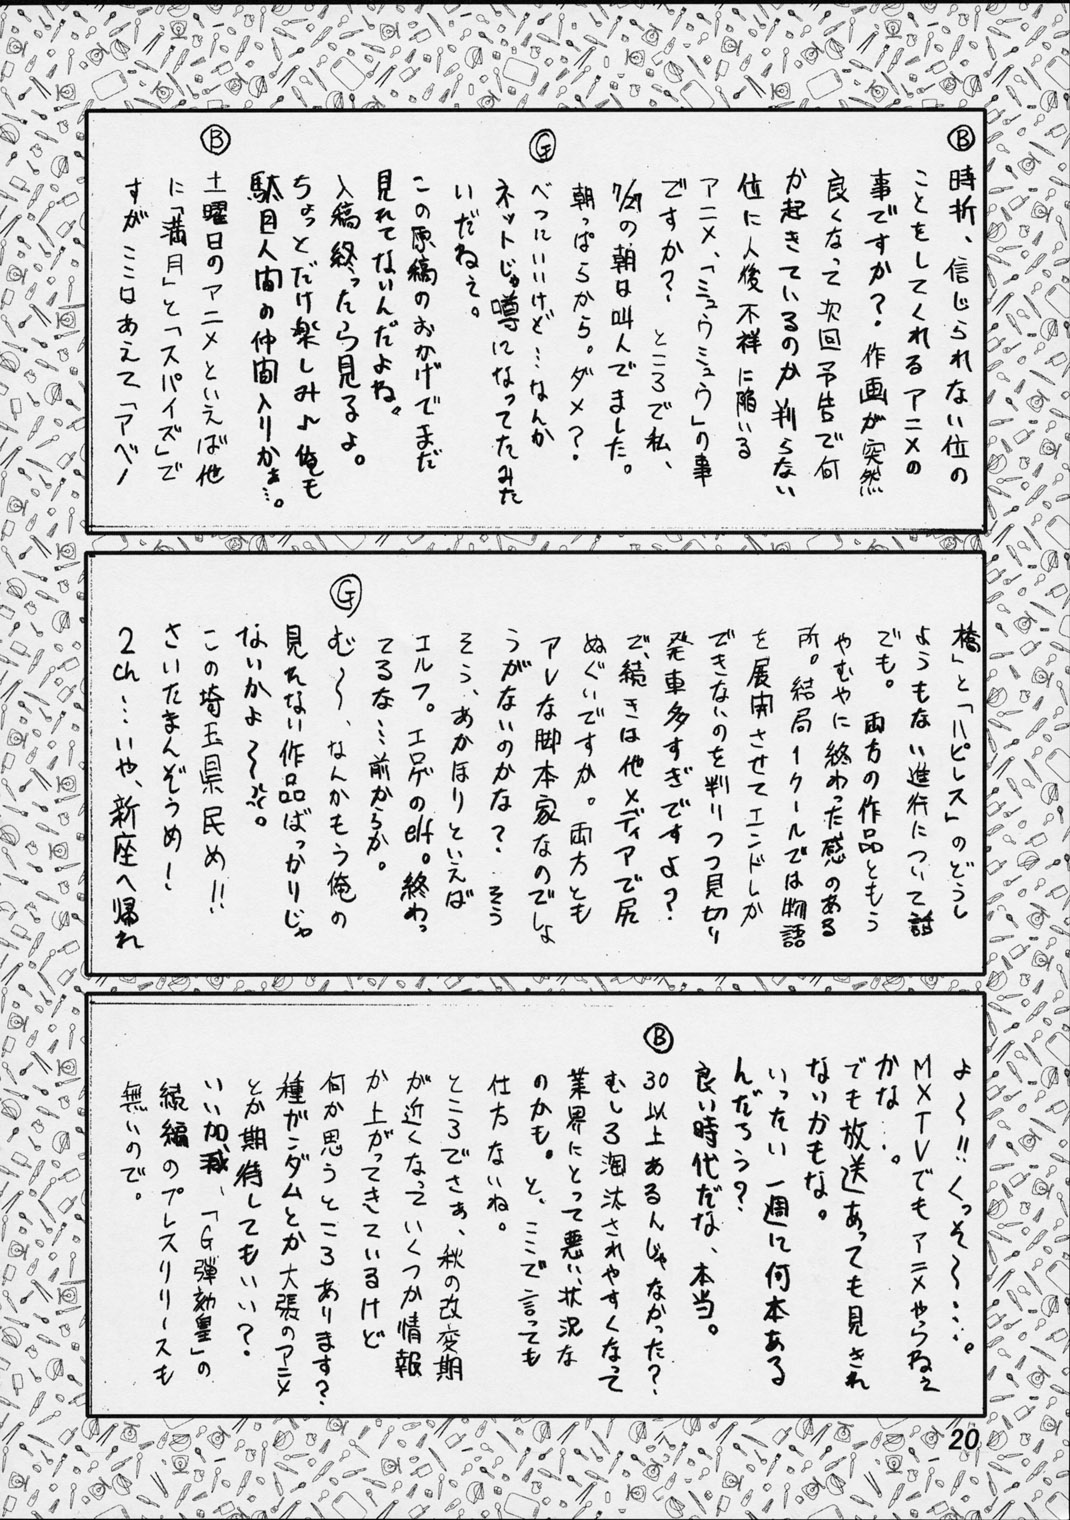 Ⓑ時折、信じられない位の
ことをしてくれるアニメの
事ですか?作画が突然
良くなって次回予告で何
が起きているのか判らない
位に人後不祥に陥いる
アニメ、「ミュウミュウ」の事
ですか? ところで私、
7/27の朝は叫んでました。
朝っぱらから。ダメ?
Ⓖべつにいいけど…なんか
ネットじゃ噂になってたみた
いだねぇ。
この原稿のおかげでまだ
見れてないんだよね。
入稿終ったら見るよ。
ちょっとだけ楽しみ♪俺も
駄目人間の仲間入りかぁ…。
Ⓑ土曜日のアニメといえば他
に「満月」と「スパイズ」で
すがここはあえて「アベノ
橋」と「ハピレス」のどうし
ようもない進行について話
でも。両方の作品ともう
やむやに終わった感のある
所。結局1クールでは物語
を展開させてエンドしか
できないのを判りつつ見切り
発車多すぎですよ?
で、続きは他メディアで尻
ぬぐいですか。両方とも
アレな脚本家なのでしょ
うがないのかな?そう
そう、あかほりといえば
エルフ。エロゲのelf。終わっ
てるな…前からか。
Ⓖむ〜、なんかもう俺の
見れない作品ばっかりじゃ
ないかよ〜。
この埼玉県民め!!
さいたまんぞうめ!
2ch…いや、新座へ帰れ
よ〜!!くっそ〜…。
MXTVでもアニメやらねぇ
かな…。
でも放送あっても見きれ
ないかもな。
いったい一週に何本ある
んだろう?
良い時代だな、本当。
Ⓑ30以上あるんじゃなかった?
むしろ淘汰されやすくなって
業界にとって悪い状況な
のかも。と、ここで言っても
仕方ないね。
ところでさぁ、秋の改変期
が近くなっていくつか情報
が上がってきているけど
何か思うところあります?
種ガンダムとか大張のアニメ
とか期待してもいい?
いい加減、「G弾劾凰」の
続編のプレスリリースも
無いので。
20